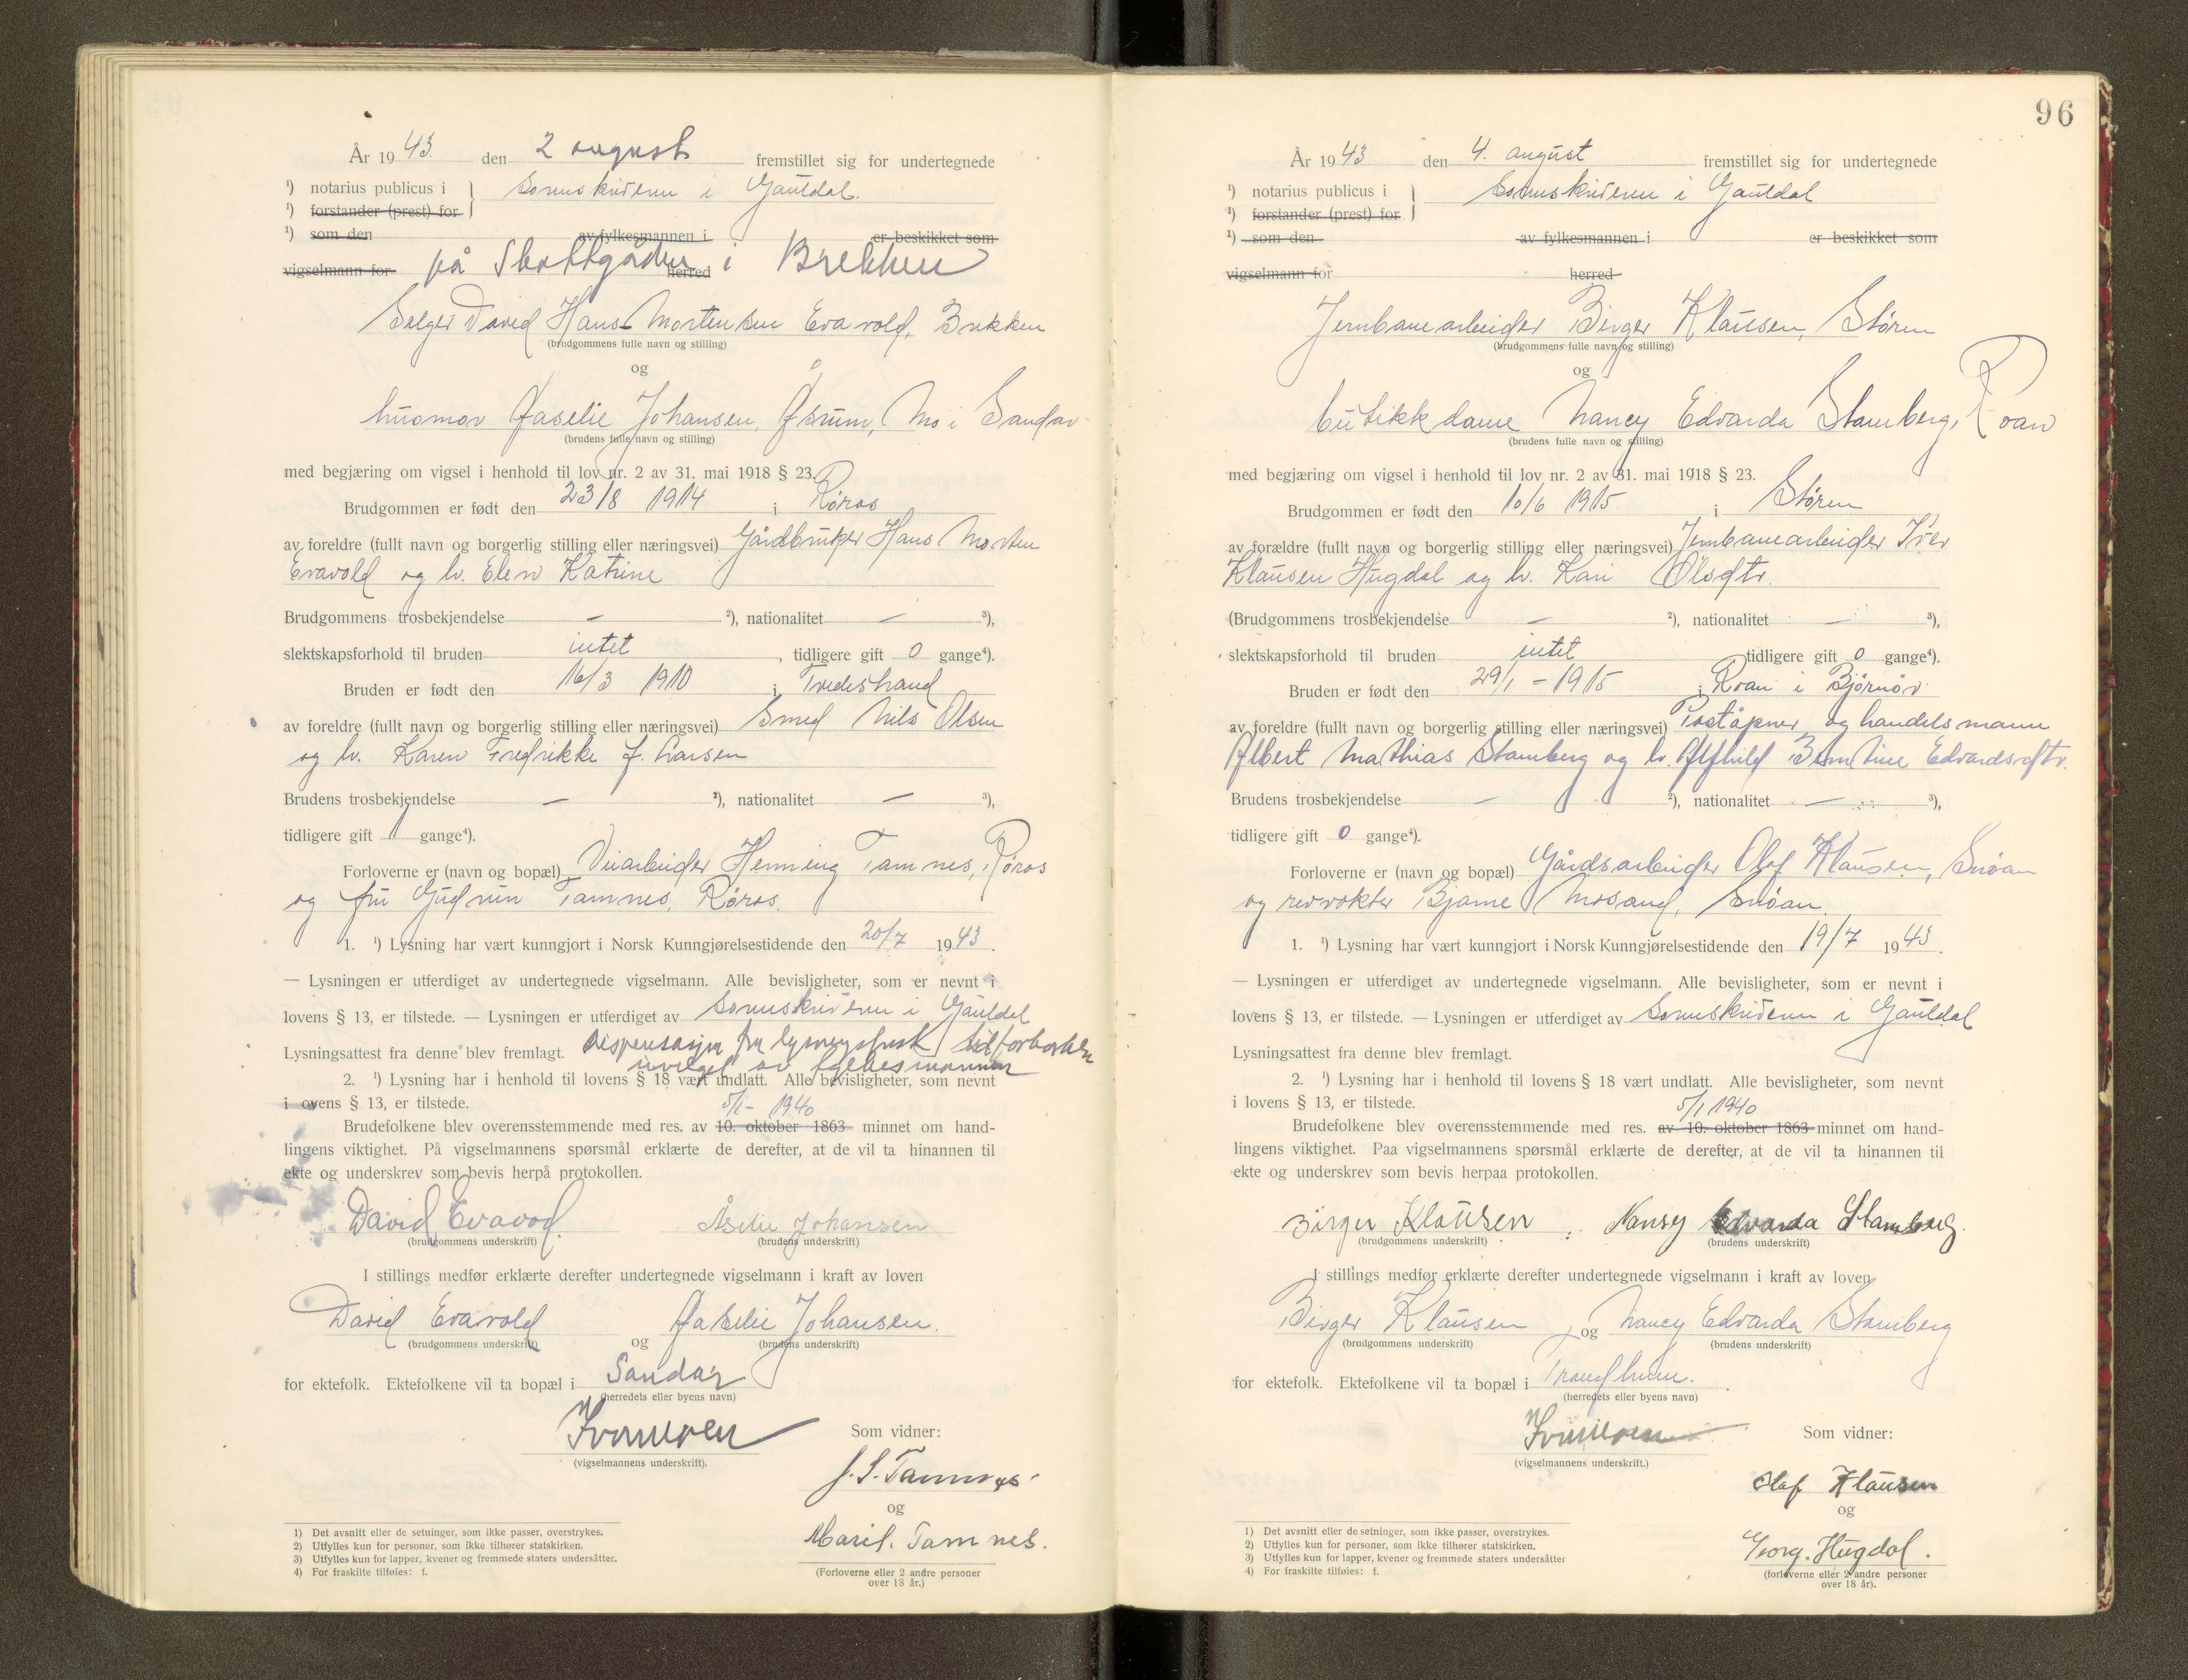 År 1943. den 2 august fremstillet sig for undertegnede
¹) notarius publicus i
sorenskriveren i Gauldal.
¹) forstander (prest) for
¹) som den av fylkesmannen i er beskikket som
vigselmann for på Skottgården herred i Brekken
Selger David Hans Mortensen Evavold, Brekken
(brudgommens fulle navn og stilling)
og
husmor Aaselie Johansen, Mo i Sandar
(brudens fulle navn og stilling)
med begjæring om vigsel i henhold til lov nr. 2 av 31. mai 1918 § 23.
Brudgommen er født den 23/8 1914 i Røros
av foreldre (fullt navn og borgerlig stilling eller næringsvei) Gårdbruker Hans Morten
Evavold og h. Elen Katrine
Brudgommens trosbekjendelse — ²), nationalitet — ³),
slektskapsforhold til bruden intet, tidligere gift 0 gange⁴).
Bruden er født den 16/3 1910 i Tvedestrand
av foreldre (fullt navn og borgerlig stilling eller næringsvei) Smed Nils Olsen
og h. Karen Fredrikke f. Larsen
Brudens trosbekjendelse — ²), nationalitet — ³),
tidligere gift 1 gange⁴).
Forloverne er (navn og bopæl) Veiarbeider Henning Tamnes, Røros
og fru Gudrun Tamnes, Røros.
1. ¹) Lysning har vært kunngjort i Norsk Kunngjørelsestidende den 20/7 1943.
— Lysningen er utferdiget av undertegnede vigselmann. Alle bevisligheter, som er nevnt i
lovens § 13, er tilstede. — Lysningen er utferdiget av sorenskriveren i Gauldal
Lysningsattest fra denne blev fremlagt. Dispensasjon fra lysningsfrist
innvilget av fylkesmannen
2. ¹) Lysning har i henhold til lovens § 18 vært undlatt. Alle bevisligheter, som nevnt
i ovens § 13, er tilstede.
5/1- 1940
Brudefolkene blev overensstemmende med res. av 10. oktober 1863 minnet om hand-
lingens viktighet. På vigselmannens spørsmål erklærte de derefter, at de vil ta hinannen til
ekte og underskrev som bevis herpå protokollen.
David Evavod. Åselie Johansen
(brudgommens underskrift) (brudens underskrift)
I stillings medfør erklærte derefter undertegnede vigselmann i kraft av loven
David Evavold og Aaselie Johansen.
(brudgommens underskrift) (brudens underskrift)
for ektefolk. Ektefolkene vil ta bopæl i Sandar
(herredets eller byens navn)
(vigselmannens underskrift).
Som vidner:
J. S. Tamnes
og
Marit. Tamnes.
(Forloverne eller 2 andre personer
over 18 år.)
1) Det avsnitt eller de setninger, som ikke passer, overstrykes.
2) Utfylles kun for personer, som ikke tilhører statskirken.
3) Utfylles kun for lapper, kvener og fremmede staters undersåtter.
4) For fraskilte tilføies: f.
96
År 1943 den 4. august fremstillet sig for undertegnede
¹) notarius publicus i
sorenskriveren i Gauldal
¹) forstander (prest) for
¹) som den av fylkesmannen i er beskikket som
vigselmann for herred
Jernbanearbeider Birger Klausen, Støren
(brudgommens fulle navn og stilling)
og
butikkdame Nancy Edvarda Stamberg, Roan
(brudens fulle navn og stilling)
med begjæring om vigsel i henhold til lov nr. 2 av 31. mai 1918 § 23.
Brudgommen er født den 10/6 1915 i Støren
av forældre (fullt navn og borgerlig stilling eller næringsvei) Jernbanearbeider Iver
Klausen Hugdal og h. Kari Olsdtr.
(Brudgommens trosbekjendelse — ²), nationalitet — ³),
slektskapsforhold til bruden intet tidligere gift 0 gange⁴).
Bruden er født den 29/1 - 1915 i Roan i Bjørnør
av foreldre (fullt navn og borgerlig stilling eller næringsvei) Poståpner og handelsmann
Albert Mathias Stamberg og h. Alfhild Berntine Edvardsdtr.
Brudens trosbekjendelse — ²), nationalitet — ³),
tidligere gift 0 gange⁴).
Forloverne er (navn og bopæl) Gårdsarbeider Olaf Klausen, Snøan
og røkter Bjarne Mosand, Snøan.
1. ¹) Lysning har vært kunngjort i Norsk Kunngjørelsestidende den 19/7 1943.
— Lysningen er utferdiget av undertegnede vigselmann. Alle bevisligheter, som er nevnt i
lovens § 13, er tilstede. — Lysningen er utferdiget av Sorenskriveren i Gauldal
Lysningsattest fra denne blev fremlagt.
2. ¹) Lysning har i henhold til lovens § 18 vært undlatt. Alle bevisligheter, som nevnt
i lovens § 13, er tilstede.
5/1 1940
Brudefolkene blev overensstemmende med res. av 10. oktober 1863 minnet om hand-
lingens viktighet. Paa vigselmannens spørsmål erklærte de derefter, at de vil ta hinannen til
ekte og underskrev som bevis herpaa protokollen.
Birger Klausen Nansy Edvarda Stamberg.
(brudgommens underskrift) (brudens underskrift)
I stillings medfør erklærte derefter undertegnede vigselmann i kraft av loven
Birger Klausen og Nancy Edvarda Stamberg
(brudgommens underskrift) (brudens underskrift)
for ektefolk. Ektefolkene vil ta bopæl i Trondheim.
(herredets eller byens navn)
(vigselmannens underskrift.)
Som vidner:
Olaf Klausen
og
Georg. Hugdal.
(forloverne eller 2 andre personer
over 18 år).
1) Det avsnitt eller de setninger, som ikke passer, overstrykes.
2) Utfylles kun for personer, som ikke tilhører statskirken.
3) Utfylles kun for lapper, kvener og fremmede staters undersåtter
4) For fraskilte tilføies: f.